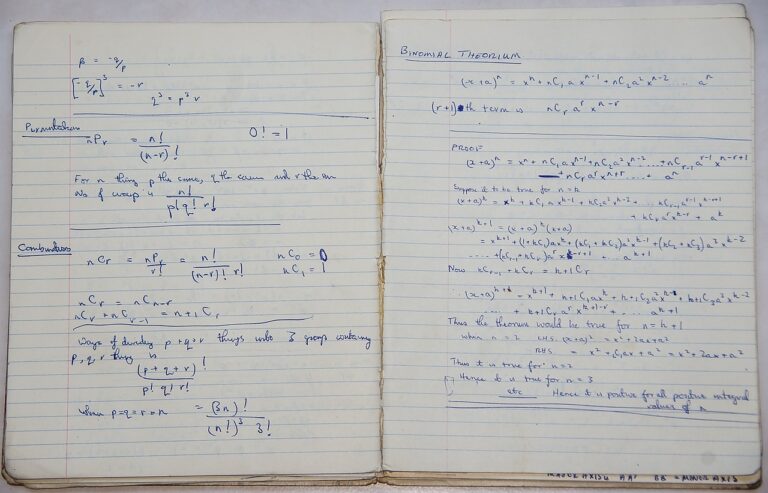 β = -q/p
[-q/p]³ = -r
q³ = p³r
Permutations
nPr = n!/(n-r)!
0! = 1
For n thing p the same, q the same and r the same
No of ways is n!/p!q!r!
Combinations
nCr = nPr/r! = n!/(n-r)! r!
nC₀ = 0
nC₁ = 1
nCr = nCn-r
nCr + nCr-1 = n+1Cr
Ways of dividing p+q+r things into 3 groups containing
p, q, r things is
(p+q+r)!/p! q! r!
when p=q=r=n = (3n)!/(n!)³ 3!
BINOMIAL THEORIUM
(x+a)ⁿ = xⁿ + nC₁ a xⁿ⁻¹ + nC₂a² xⁿ⁻² ..... aⁿ
(r+1)th term is nCr aʳ xⁿ⁻ʳ
PROOF
(x+a)ⁿ = xⁿ + nC₁axⁿ⁻¹ + nC₂a²xⁿ⁻² .....+nCr-1 aʳ⁻¹ xⁿ⁻ʳ⁺¹
+ nCr aʳ xⁿ⁺ʳ ..... aⁿ
Suppose it to be true for n=k
(x+a)ᵏ = xᵏ + kC₁ a xᵏ⁻¹ + kC₂a²xᵏ⁻² ..... kCr-1 aʳ⁻¹ xᵏ⁻ʳ⁺¹
+ kCr aʳ xᵏ⁻ʳ + aᵏ
(x+a)ᵏ⁺¹ = (x+a)ᵏ(x+a)
= xᵏ⁺¹ + (1+kC₁)axᵏ + (kC₁+kC₂)a²xᵏ⁻¹ + (kC₂+kC₃)a³xᵏ⁻²
.....+(kCr-1+kCr)aʳ xᵏ⁻ʳ⁺¹ + ... aᵏ⁺¹
Now kCr-1 + kCr = k+1Cr
(x+a)ᵏ⁺¹ = xᵏ⁺¹ + k+1C₁axᵏ + k+1C₂a²xᵏ⁻¹ + k+1C₃a³xᵏ⁻²
..... + k+1Cr aʳ xᵏ⁺¹⁻ʳ + ... aᵏ⁺¹
Thus the theorem would be true for n=k+1
when n=2 LHS (x+a)² = x²+2ax+a²
RHS = x² + ₂C₁ax+a² = x²+2ax+a²
Thus it is true for n=2
Hence it is true for n=3
etc Hence it is positive for all positive integral
values of n
MAJOR AXIS = AA' BB' = MINOR AXIS